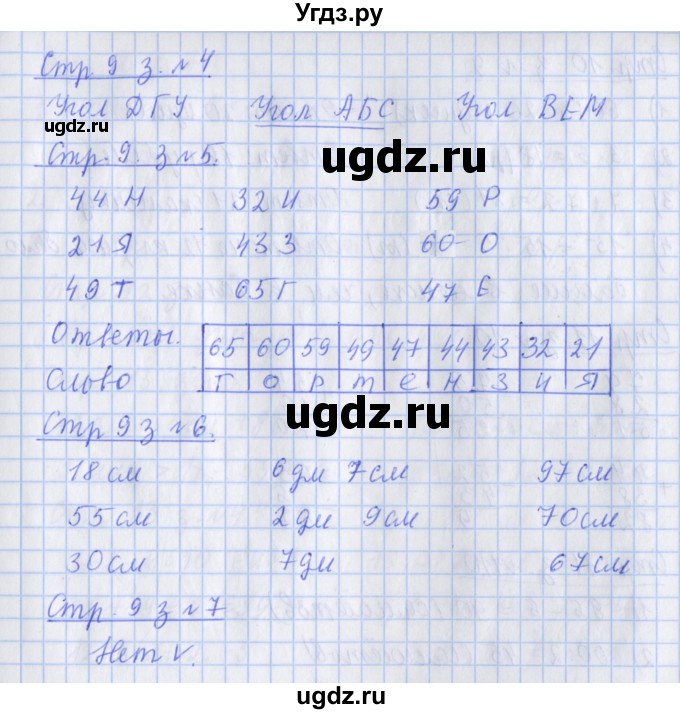 Угдз.ру
Стр 9 з. №4
Угол ДГУ Угол АБС Угол ВЕМ
ugdz.ru
ugdz.ru
Стр. 9. з №5.
44 Н 32 И 59 Р
21 Я 43 З 60 О
49 Т 65 Г 47 Е
Ответы. 65 60 59 49 47 44 43 32 21
Слово Г О Р Т Е Н З И Я
ugdz.ru
Стр 9 з №6.
18 см 6 дм 7 см 97 см
55 см 2 дм 9 см 70 см
30 см 7 дм 67 см
ugdz.ru
Стр. 9 з №7
Нет V.
ugdz.ru